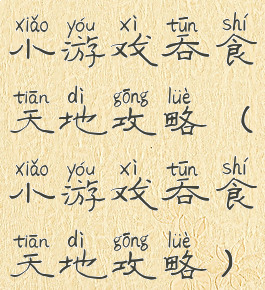 xiǎo yóu xì tūn shí
小游戏吞食
tiān dì gōng lüè
天地攻略（
xiǎo yóu xì tūn shí
小游戏吞食
tiān dì gōng lüè
天地攻略）